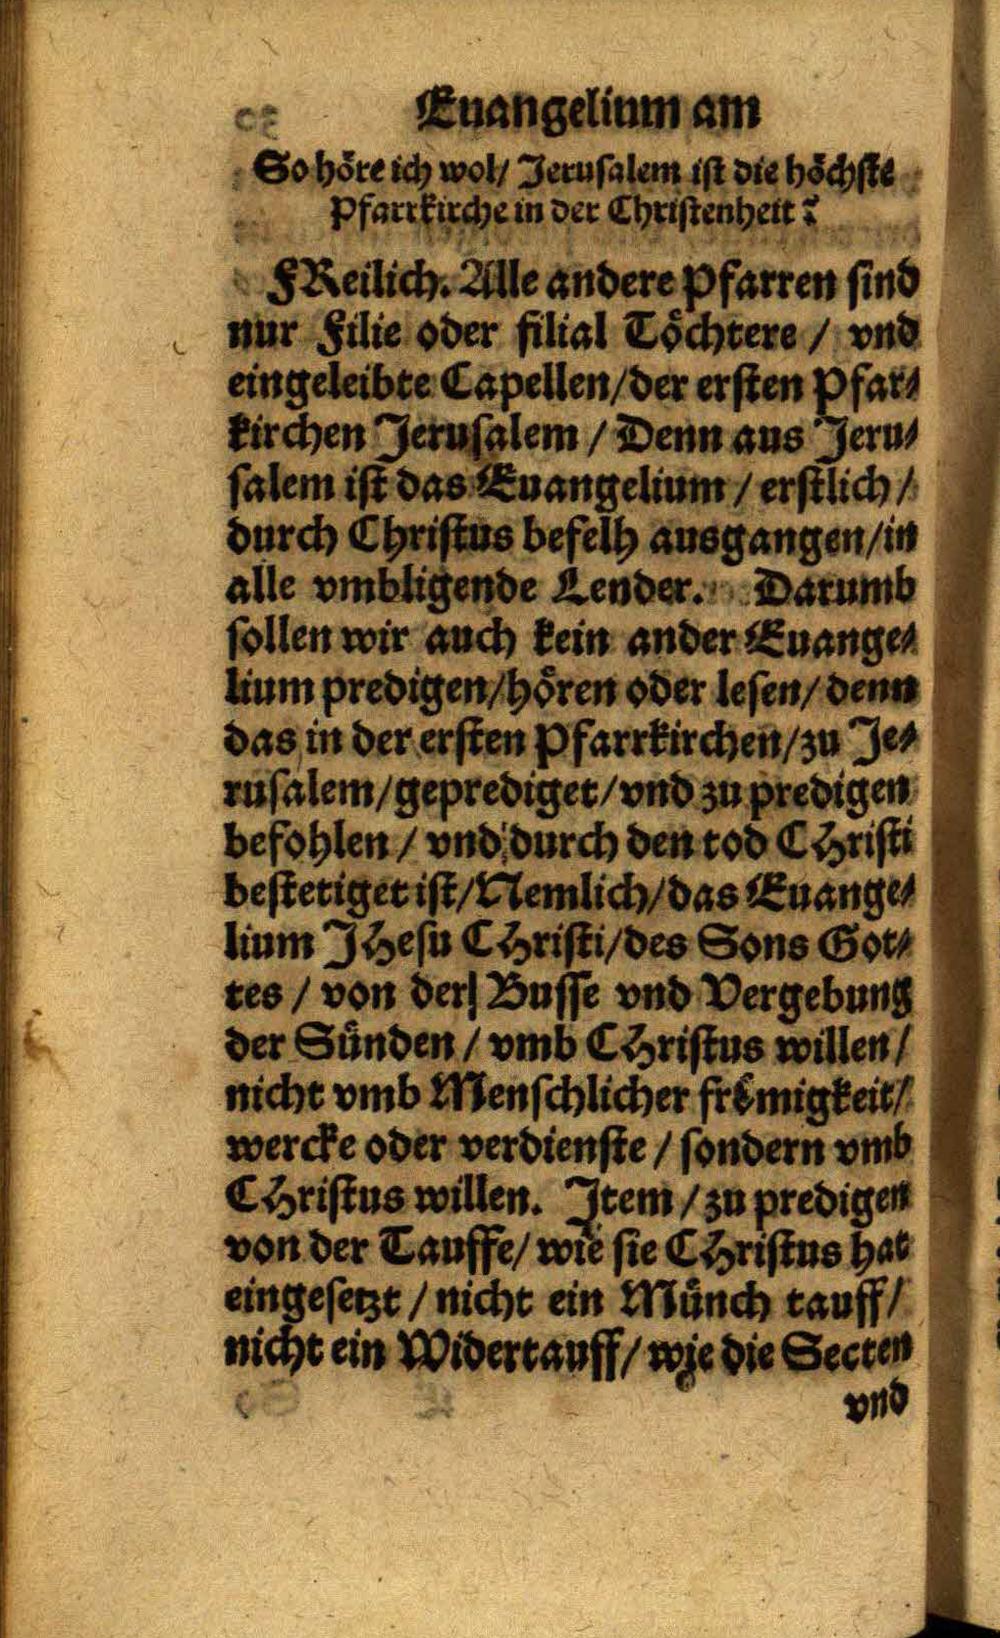 Euangelium am
So höre ich wol/ Jerusalem ist die höchste
Pfarrkirche in der Christenheit?
FReilich. Alle andere Pfarren sind
nur Filie oder filial Töchtere / vnd
eingeleibte Capellen/der ersten Pfar-
kirchen Jerusalem / Denn aus Jeru-
salem ist das Euangelium / erstlich /
durch Christus befelh ausgangen/in
alle vmbligende Lender. Darumb
sollen wir auch kein ander Euange-
lium predigen/hören oder lesen/ denn
das in der ersten Pfarrkirchen/zu Je-
rusalem/geprediget/vnd zu predigen
befohlen / vnd durch den tod CHristi
bestetiget ist/Nemlich/das Euange-
lium JHesu CHristi/des Sons Got-
tes / von der Busse vnd Vergebung
der Sünden / vmb CHristus willen /
nicht vmb Menschlicher frömigkeit/
wercke oder verdienste / sondern vmb
CHristus willen. Item / zu predigen
von der Tauffe/ wie sie CHristus hat
eingesetzt / nicht ein Münch tauff/
nicht ein Widertauff/ wie die Secten
vnd